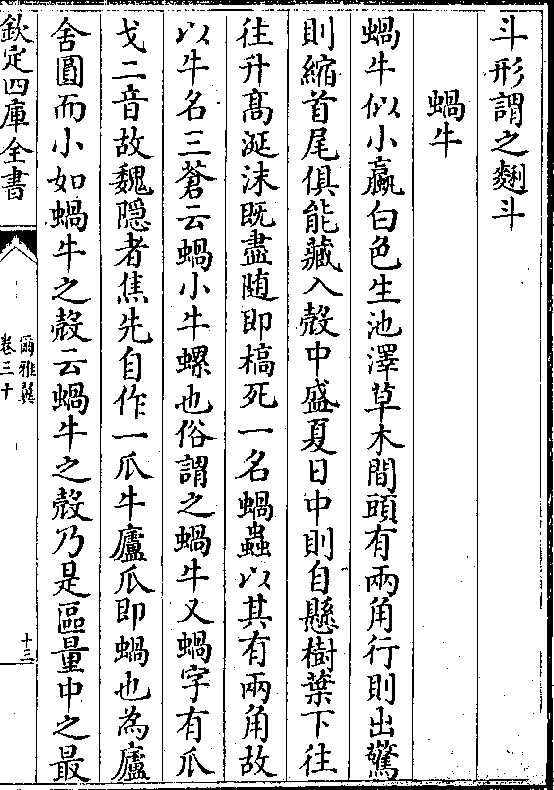 斗形謂之𪌉斗
蝸牛
蝸牛似小蠃白色生池澤草木間頭有兩角行則出驚
則縮首尾俱能藏入殼中盛夏日中則自懸樹葉下往
往升髙涎沫既盡随即槁死一名蝸蟲以其有兩角故
以牛名三蒼云蝸小牛螺也俗謂之蝸牛又蝸字有瓜
戈二音故魏隠者焦先自作一瓜牛廬瓜即蝸也為廬
舍圓而小如蝸牛之殼云蝸牛之殼乃是區量中之最
欽定四庫全書
爾雅翼
卷三十
十三